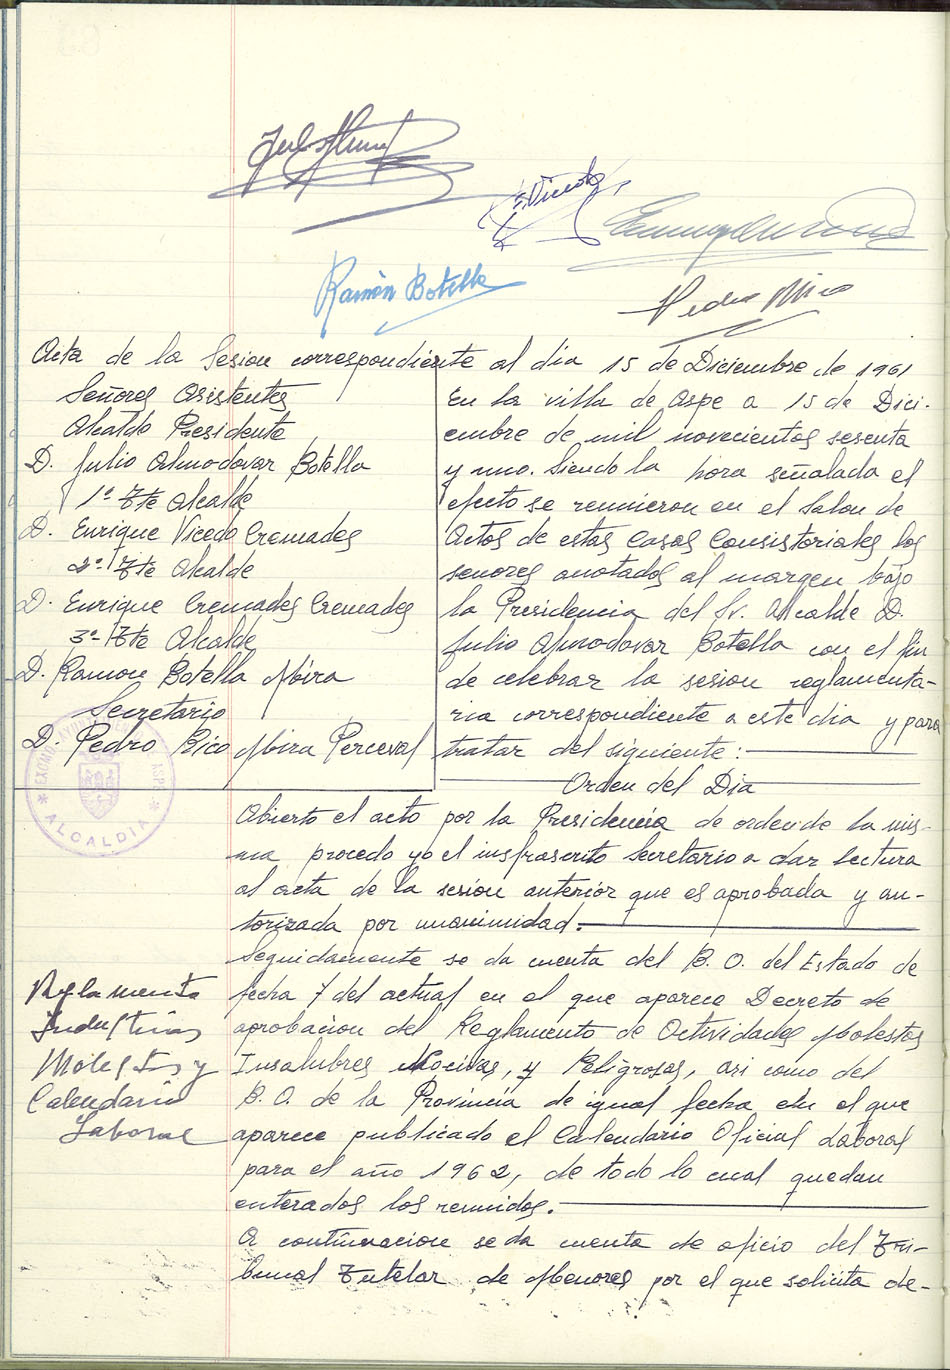 Ramón Botella
Pedro Mira
Acta de la Sesion correspondiente al dia 15 de Diciembre de 1961
Señores Asistentes
Alcalde Presidente
D. Julio Almodovar Botella
1º Tte Alcalde
D. Enrique Vicedo Cremades
2º Tte Alcalde
D. Enrique Cremades Cremades
3º Tte Alcalde
D. Ramon Botella Mira
Secretario
D. Pedro Rico Mira Perceval
ALCALDIA
En la villa de Aspe a 15 de Dici-
embre de mil novecientos sesenta
y uno. Siendo la hora señalada el
efecto se reunieron en el Salon de
Actos de estas Casas Consistoriales los
señores anotados al margen bajo
la Presidencia del Sr. Alcalde D.
Julio Almodovar Botella con el fin
de celebrar la sesion reglamenta-
ria correspondiente a este dia y para
tratar del siguiente:
Orden del Dia
Abierto el acto por la Presidencia de orden de la mis-
ma procedo yo el insfrascrito Secretario a dar lectura
al acta de la sesion anterior que es aprobada y au-
torizada por unanimidad.
Reglamento
Industrias
Molestas y
Calendario
Laboral
Seguidamente se da cuenta del B. O. del Estado de
fecha 7 del actual en el que aparece Decreto de
aprobacion del Reglamento de Actividades Molestas
Insalubres Nocivas, y Peligrosas, asi como del
B. O. de la Provincia de igual fecha en el que
aparece publicado el Calendario Oficial Laboral
para el año 1962, de todo lo cual quedan
enterados los reunidos.
A continuacion se da cuenta de oficio del Tri-
bunal Tutelar de Menores por el que solicita de-